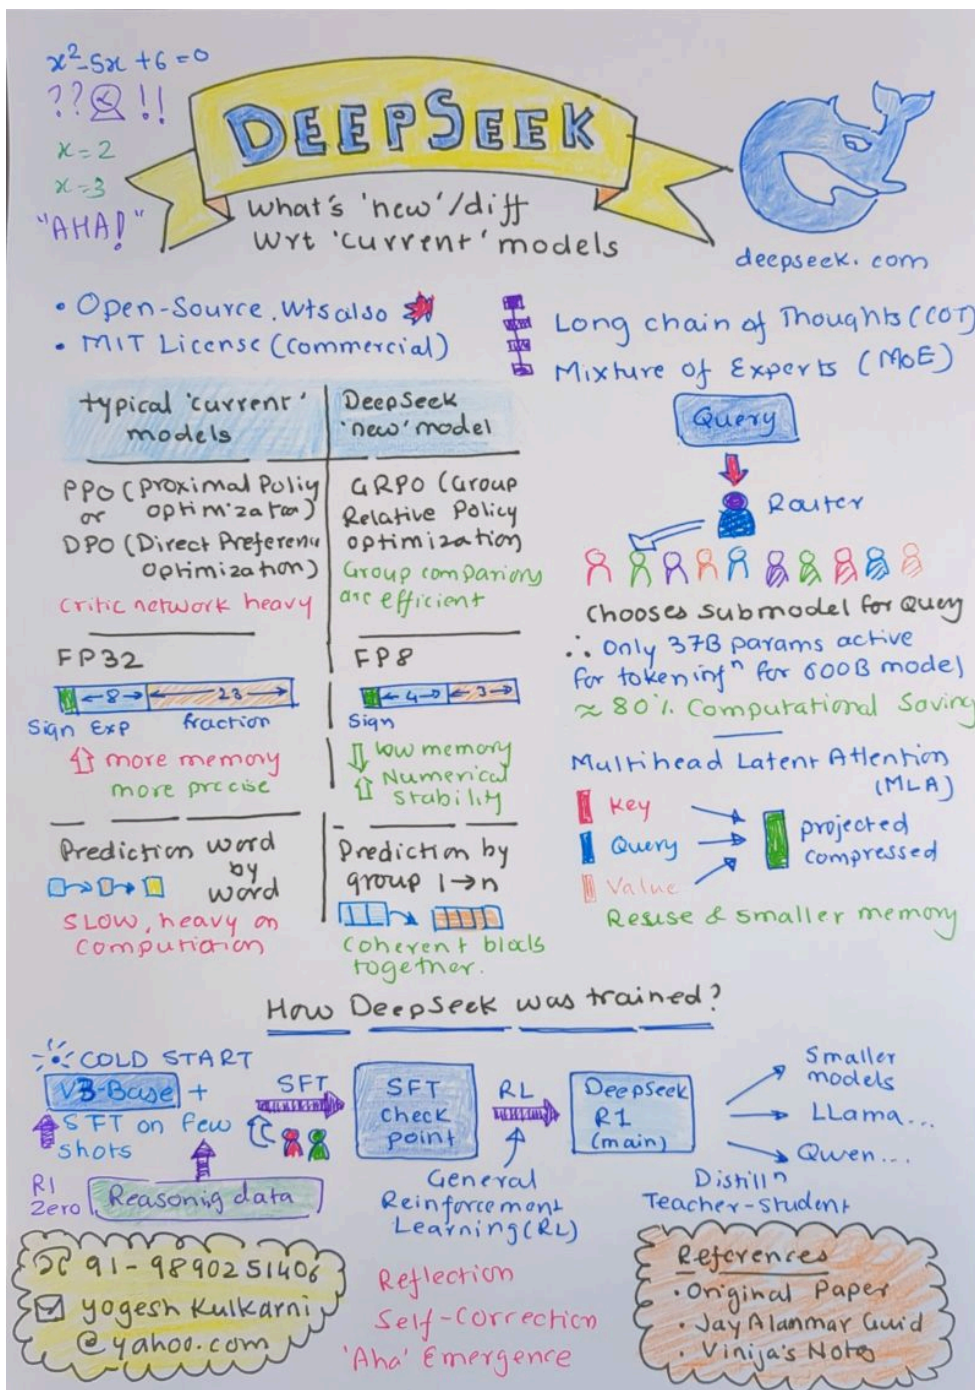 x²-5x+6=0
?? !!
x=2
x=3
"AHA!"
DEEPSEEK
What's 'new'/diff
Wrt 'current' models
deepseek.com
• Open-Source. Wts also
• MIT License (Commercial)
Long chain of Thoughts (COT)
Mixture of Experts (MoE)
typical 'current'
models
DeepSeek
'new' model
PPO (Proximal Poliy
or optimization)
DPO (Direct Preferenc
Optimization)
Critic network heavy
GRPO (Group
Relative Policy
optimization
Group comparions
are efficient
FP32
8
23
Sign Exp fraction
more memory
more precise
FP8
4
3
Sign
low memory
Numerical
stability
Prediction word
by
word
SLOW, heavy on
Prediction by
group 1→n
Coherent
together.
Query
Router
Chooses submodel for Query
∴ Only 37B params active
for token infⁿ for 600B model
≈ 80% Computational Saving
Multihead Latent Attention
(MLA)
Key
Query
Value
projected
compressed
Resuse & smaller memory
How DeepSeek was trained?
COLD START
V3-Base +
SFT on few
shots
R1
Zero
Reasonig data
SFT
SFT
check
point
RL
General
Reinforcement
Learning (RL)
DeepSeek
R1
(main)
Smaller
models
LLama...
Qwen...
Distillⁿ
Teacher-student
91-9890251406
yogeshkulkarni
@yahoo.com
Reflection
Self-Correction
'Aha' Emergence
References
• Original Paper
• Jay Alammar Guid
• Vinija's Notes